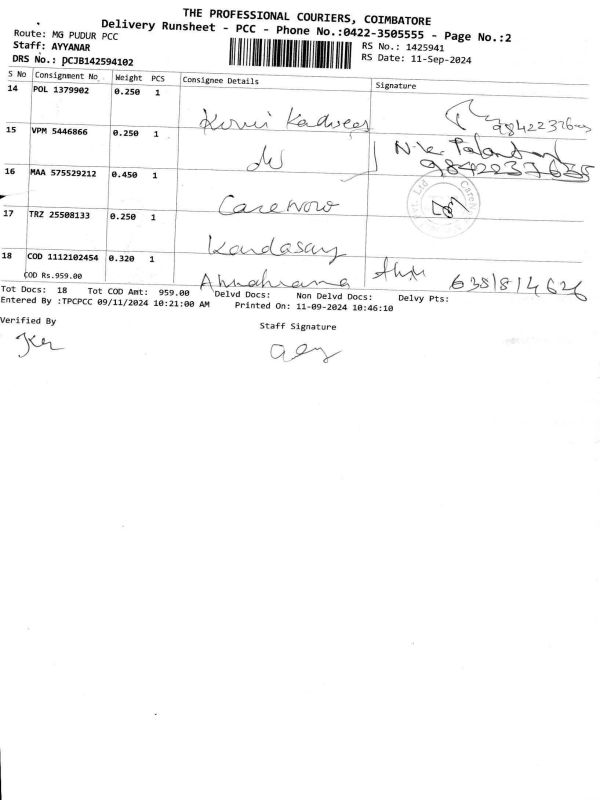 THE PROFESSIONAL COURIERS, COIMBATORE
Delivery Runsheet - PCC - Phone No.:0422-3505555 - Page No.:2
Route: MG PUDUR PCC
Staff: AYYANAR
DRS No.: DCJB142594102
RS No.: 1425941
RS Date: 11-Sep-2024
S No Consignment No Weight PCS Consignee Details Signature
14 POL 1379902 0.250 1
15 VPM 5446866 0.250 1
9842237635
16 MAA 575529212 0.450 1
Carenow
17 TRZ 25508133 0.250 1
Kandasamy
18 COD 1112102454 0.320 1
COD Rs.959.00
6381814626
Tot Docs: 18 Tot COD Amt: 959.00 Delvd Docs: Non Delvd Docs: Delvy Pts:
Entered By :TPCPCC 09/11/2024 10:21:00 AM Printed On: 11-09-2024 10:46:10
Verified By
Staff Signature